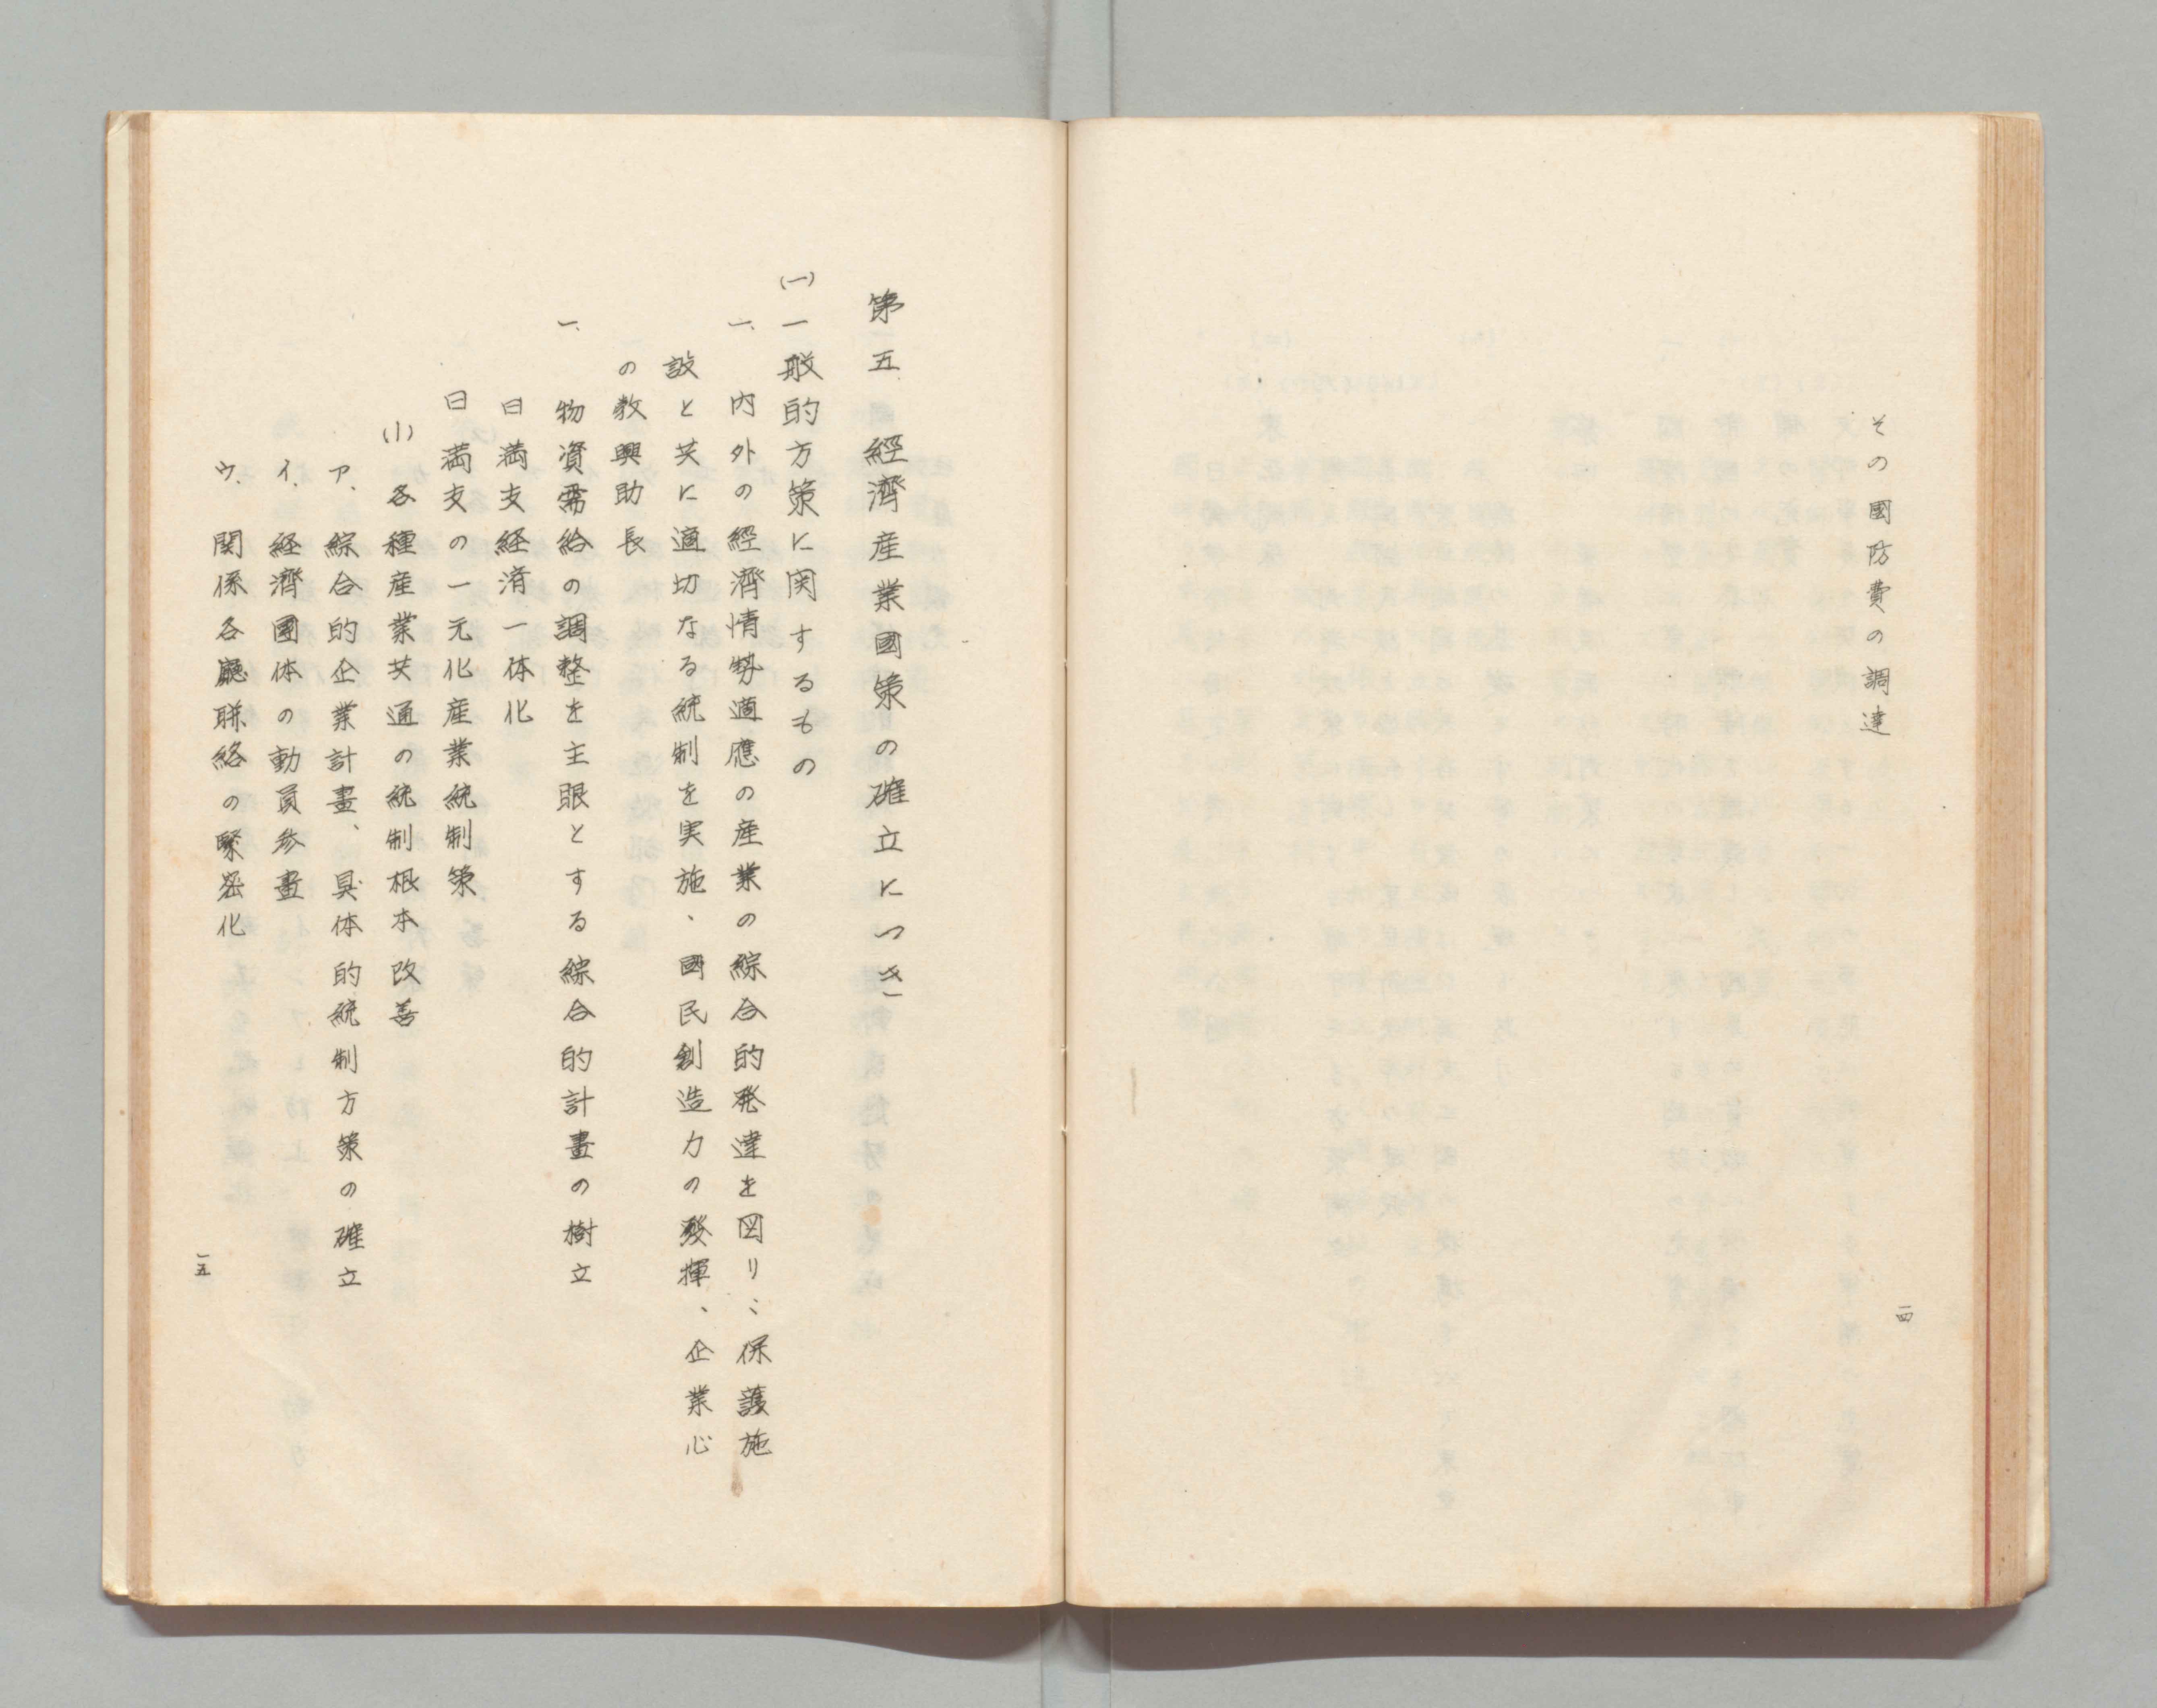 その國防費の調達
一四
第五　經濟産業國策の確立につき
(一)一般的方策に関するもの
一、内外の經濟情勢適應の産業の綜合的発達を図り、保護施
設と共に適切なる統制を実施、國民創造力の発揮、企業心
の教興助長
一、物資需給の調整を主眼とする綜合的計畫の樹立
日満支経済一体化
日満支の一元化産業統制策
(1)各種産業共通の統制根本改善
ア、綜合的企業計畫、具体的統制方策の確立
イ、経濟國体の動員参畫
ウ、関係各廳聯絡の緊密化
一五